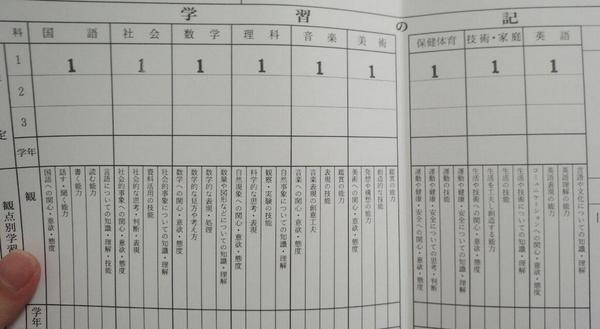 学習の記
科 国語 社会 数学 理科 音楽 美術 保健体育 技術・家庭 英語
1 1 1 1 1 1 1 1 1 1
2
3
定
学年
観点別学習
観
国語への関心・意欲・態度
話す・聞く能力
書く能力
読む能力
言語についての知識・理解・技能
社会的事象への関心・意欲・態度
社会的な思考・判断・表現
資料活用の技能
社会的事象についての知識・理解
数学への関心・意欲・態度
数学的な見方や考え方
数学的な表現・処理
数量や図形などについての知識・理解
自然現象への関心・意欲・態度
科学的な思考・表現
観察・実験の技能
自然事象についての知識・理解
音楽への関心・意欲・態度
音楽表現の創意工夫
表現の技能
鑑賞の能力
美術への関心・意欲・態度
発想や構想の能力
創造的な技能
鑑賞の能力
運動や健康・安全への関心・意欲・態度
運動や健康・安全についての思考・判断
運動の技能
運動や健康・安全についての知識・理解
生活や技術への関心・意欲・態度
生活を工夫し創造する能力
生活の技能
生活や技術についての知識・理解
コミュニケーションへの関心・意欲・態度
英語表現の能力
英語理解の能力
言語や文化についての知識・理解
学年